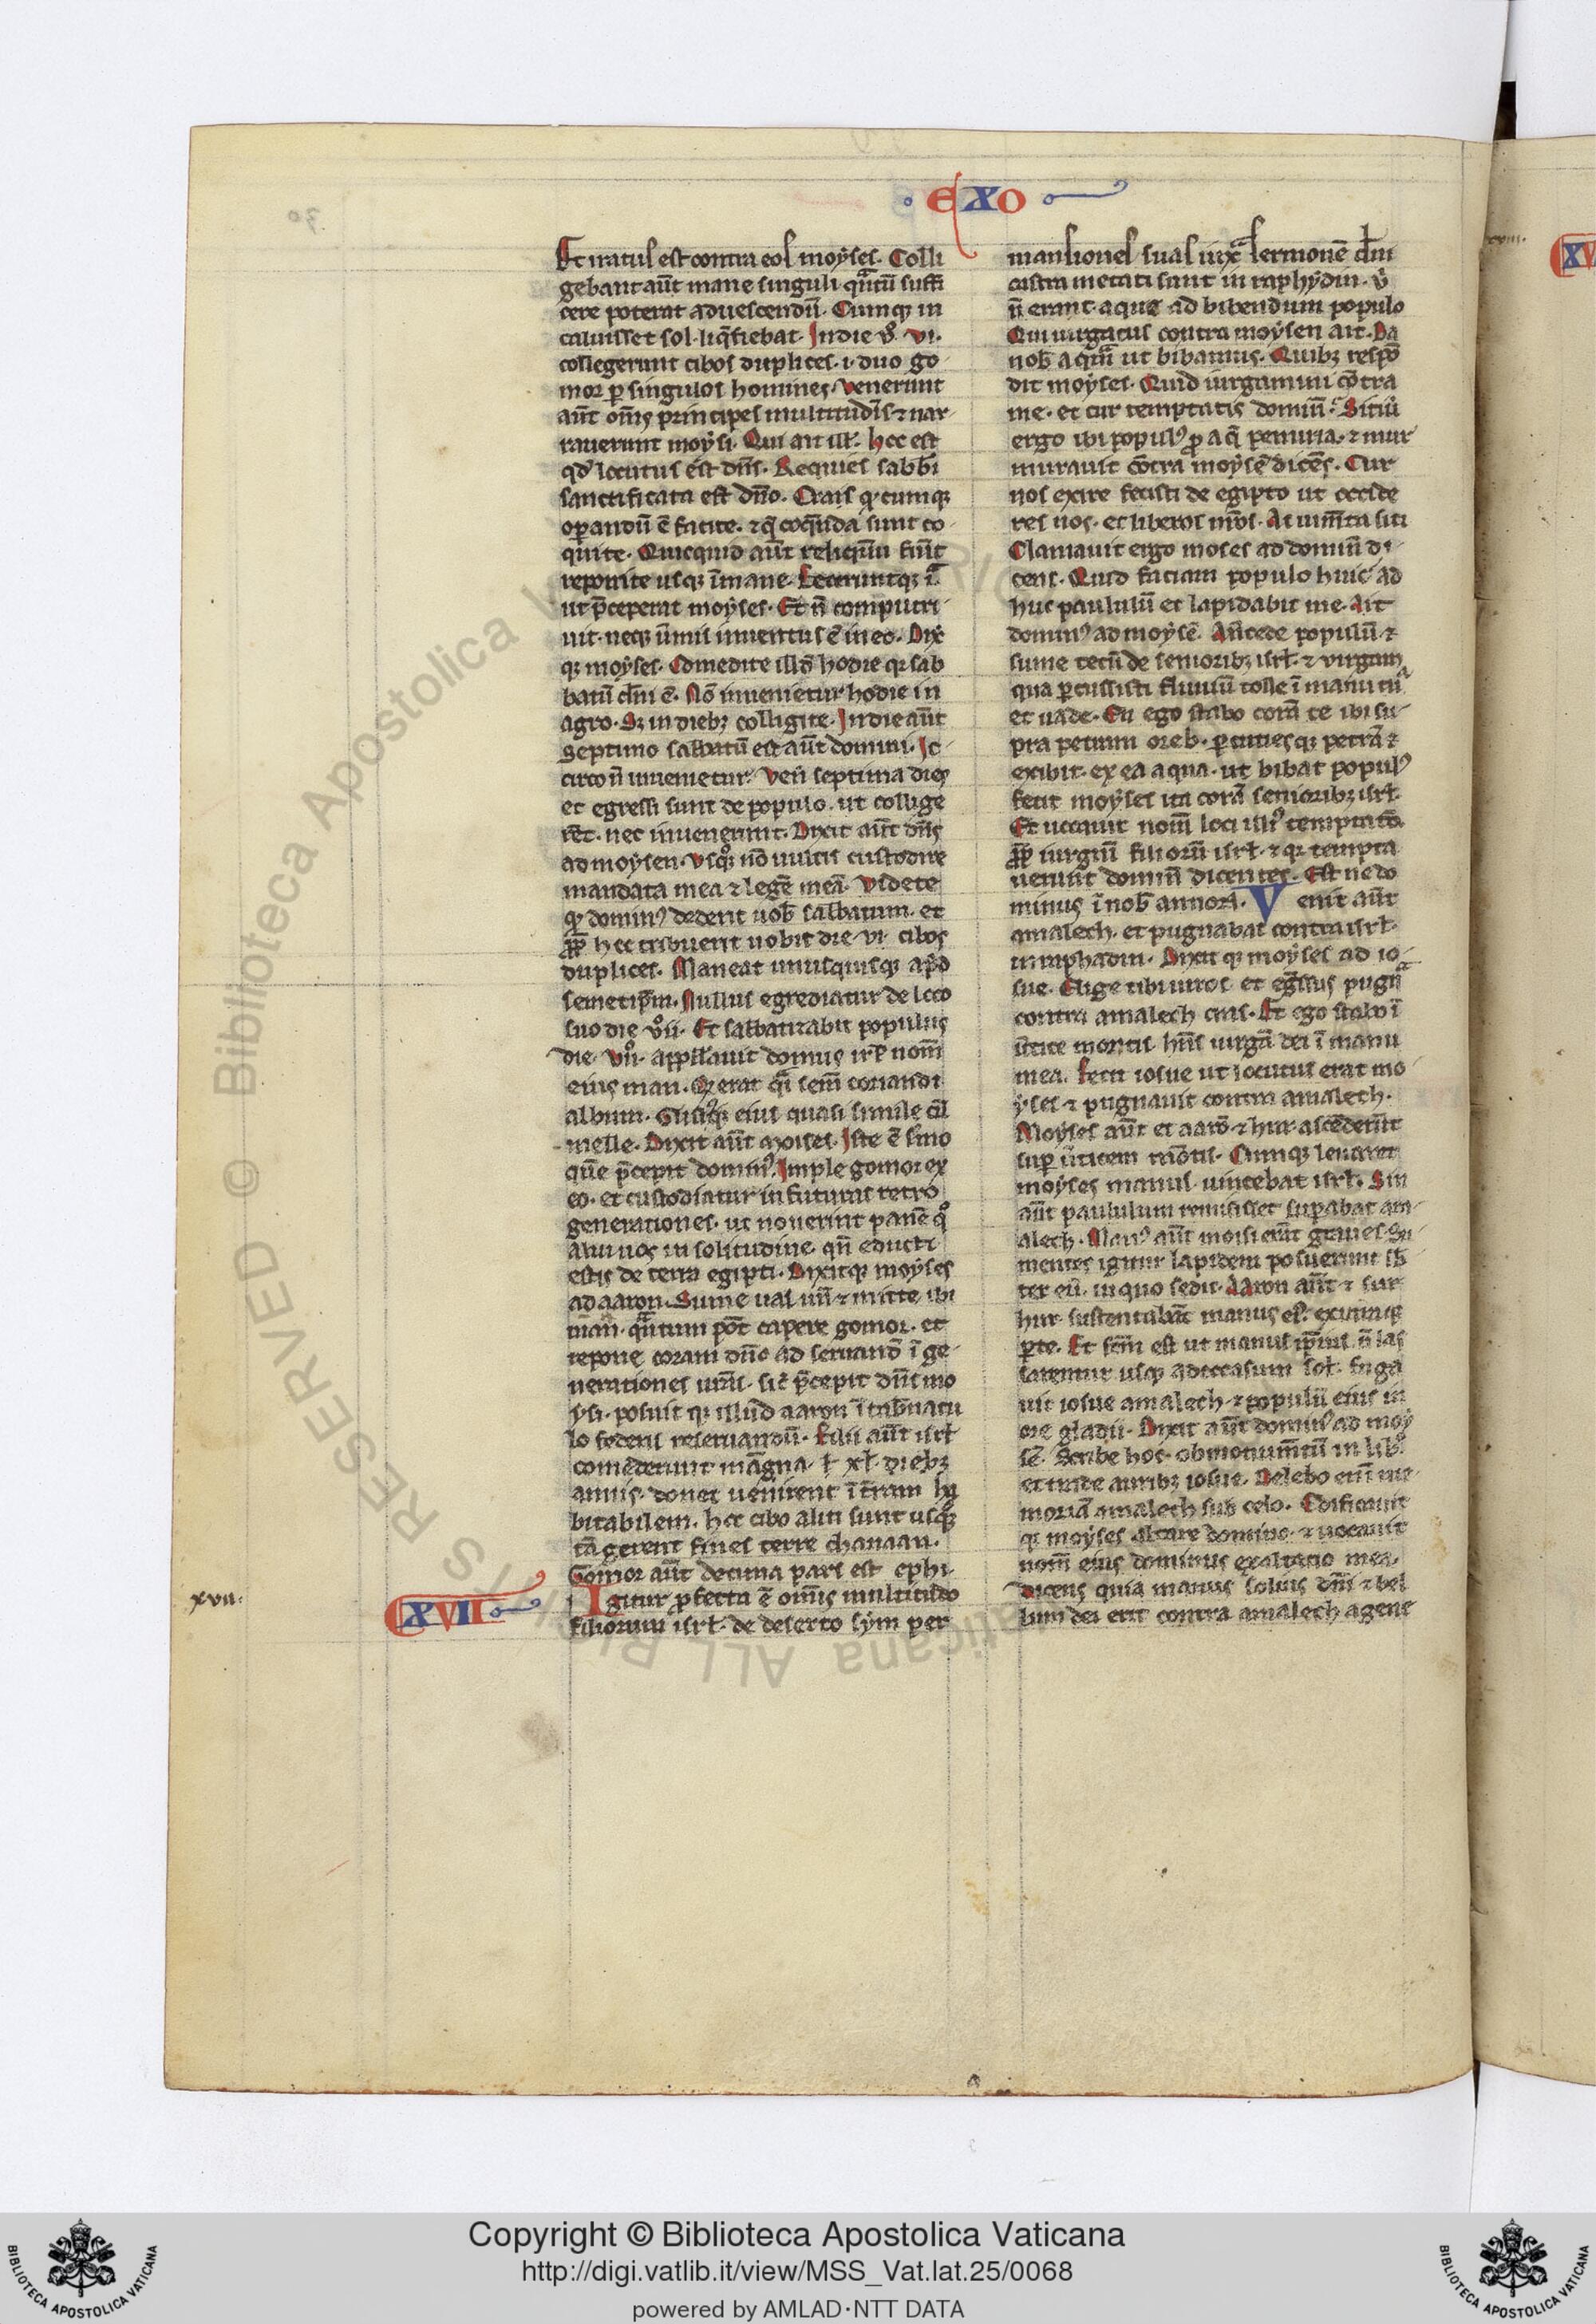 EXO
Et iratus est contra eos moyses. Colli
gebant aūt mane singuli qᵃntū suffi
cere poterat ad uescendū. Cumqꝫ in
caluisset sol. liq̄fiebat. In die ūo. vi.
collegerunt cibos duplices. i. duo go
mor ꝑ singulos homines. Venerunt
aūt om̄s principes multitudīs ⁊ nar
rauerunt moysi. Qui ait ill. Hec est
qd locutus est dn̄s. Requies sabbi
sanctificata est dn̄o. Cras q̄cumqꝫ
oꝑandū ē facite. ⁊ q̄ coq̄nda sunt co
quite. Quicquid aūt reliqūm fuīt
reponite usqꝫ ī mane. Feceruntqꝫ ita
ut p̄ceperat moyses. Et n̄ computru
uit. neqꝫ ūmis inuentus ē in eo. Dix̄
qꝫ moyses. Comedite illd hodie qꝫ sab
batū dn̄i ē. Nō inuenietur hodie in
agro. Sꝫ in diebꝫ colligite. In die aūt
septimo sabbatū est aūt domini. Ic
circo n̄ inuenietur. Ven̄ septima dies
et egressi sunt de populo. ut collige
rēt. nec inuenerunt. Dixit aūt dn̄s
ad moysen. Usqꝫ nō uultis custodire
mandata mea ⁊ legē meā. Videte
qꝫ dominꝰ dederit uob sabbatum. et
ꝓꝑ hec tribuerit uobis die. vi. cibos
duplices. Maneat unusquisqꝫ apd
semetip̄m. Nullus egrediatur de loco
suo die vii. Et sabbatizabit populus
die. vii. appellauit domus isrl nom̄
eius man. Qꝫ erat q̄i sem̄ coriandi
album. Gustꝰqꝫ eius quasi simile cū
melle. Dixit aūt moises. Iste ē s̄mo
quē p̄cepit dominꝰ. Imple gomor ex
eo. et custodiatur in futuras retro
generationes. ut nouerint panē qͦ
alui uos in solitudine. qn̄ educti
estis de terra egipti. Dixitqꝫ moyses
ad aaron. Sume uas unū ⁊ mitte ibi
man. qᵃntum pōt capere gomor. et
repone coram dn̄o ad seruand ī ge
nerationes uras. sic p̄cepit dn̄s mo
ysi. posuit qꝫ illud aaron ī tab̄natu
lo federis reseruandū. Filii aūt isrl
comēderunt māgna. xl. diebꝫ
annis. donec uenirent ī t̄ram ha
bitabilem. hec cibo aliti sunt usqꝫ
tāgerent fines terre chanaan.
Gomor aūt decima pars est ephi.
Igitur ꝓfecta ē om̄is multitudo
filiorum isrl. de deserto sym per
xvii.
XVII
mansiones suas iuxᵃ sermonē dn̄i
castra metati sunt in raphydin. ū
n̄ erant aque ad bibendum populo
Qui iurgatus contra moysen ait. Da
nob aquā ut bibamus. Quibꝫ respō
dit moyses. Quid iurgamini cōtra
me. et cur temptatis dominū. Sitiū
ergo ibi populꝰ ꝓ aq̄ penuria. ⁊ mur
murauit cōtra moysē dicēs. Cur
nos exire fecisti de egipto ut occide
res nos. et liberos nr̄os. Ac iumēta siti
Clamauit ergo moses ad dominū di
cens. Quid faciam populo huic ad
huc paululū et lapidabit me. Ait
dominꝰ ad moysē. An̄cede populū ⁊
sume tecū de senioribꝫ isrl. ⁊ virgam
qua ꝑcussisti fluuiū tolle ī manu tuᵃ
et uade. En ego stabo corā te ibi su
pra petram oreb. ꝑcutiesqꝫ petrā ⁊
exibit. ex ea aqua. ut bibat populꝰ
fecit moyses ita corā senioribꝫ isrl.
Et uocauit nom̄ loci illiꝰ temptatō
ꝓꝑ iurgiū filiorū isrl. ⁊ qꝫ tempta
uerunt dominū dicentes. Est ne do
minus ī nob an non. Venit aūt
amalech. et pugnabat contra isrl.
in raphadin. Dixit qꝫ moyses ad io
sue. Elige tibi uiros. et eḡssus pugnᵃ
contra amalech cras. Et ego stabo ī
ūtice montis. hn̄s uirgā dei ī manu
mea. Fecit iosue ut locutus erat mo
yses ⁊ pugnauit contra amalech.
Moyses aūt et aarō ⁊ hur. ascēderūt
suꝑ ūticem mōtis. Cumqꝫ leuaret
moyses manus. uincebat isrl. Sin
aūt paululum remisisset suꝑabat am
alech. Manꝰ aūt moisi erāt graues. Su
mentes igitur lapidem posuerunt sb
ter eū. in quo sedit. Aaron aūt ⁊ sur
hur sustentabāt manus eꝰ. ex utraqꝫ
ꝑte. Et fcm̄ est ut manus ip̄ius n̄ las
sarentur usqꝫ ad occasum sol. fuga
uit iosue amalech. ⁊ populū eius in
ore gladii. Dixit aūt dominꝰ ad moy
sē. Scribe hoc. ob monumtū in libͦ
et trade auribꝫ iosue. Delebo enī me
moriā amalech sub celo. Edificauit
qꝫ moyses altare domino. ⁊ uocauit
nom̄ eius dominus exaltatio mea.
Dicens quia manus solius dn̄i ⁊ bel
lum dei erit contra amalech a gene
Copyright © Biblioteca Apostolica Vaticana
http://digi.vatlib.it/view/MSS_Vat.lat.25/0068
powered by AMLAD·NTT DATA